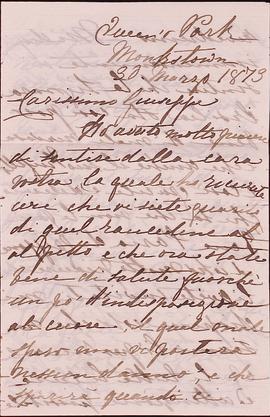 Queen's Park
Monkstown
30 Marzo 1873
Carissimo Giuseppe
Ho avuto molto piacere
di sentire dalla cara
vostra, la quale ho ricevuta
ieri che vi siete guarito
di quel raucedine
al petto e che ora state
bene di salute fuorchè
un po' d'indisposizione
al cuore, il quale male
spero non vi porterà
nessun danno, e che
sparirà quando ci